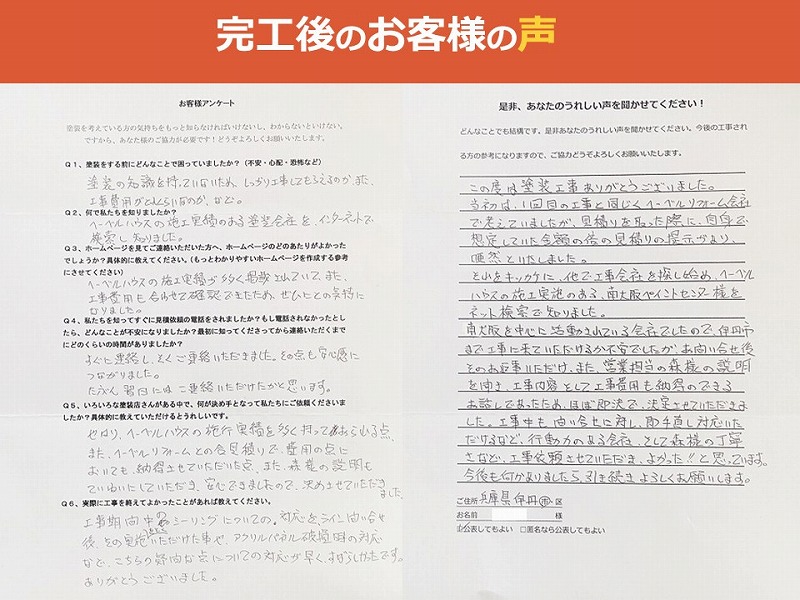 完工後のお客様の声
お客様アンケート
塗装を考えている方の気持ちをもっと知らなければいけないし、わからないといけない。
ですから、あなた様のご協力が必要です！どうぞよろしくお願いいたします。
Q1、塗装をする前にどんなことで困っていましたか？（不安・心配・恐怖など）
塗装の知識を持っていないため、しっかり工事してもらえるのか、また、
工事費用がどんくらいなのか、など。
Q2、何で私たちを知りましたか？
ヘーベルハウスの施工実績のある塗装会社を、インターネットで
検索し知りました。
Q3、ホームページを見てご連絡いただいた方へ、ホームページのどのあたりがよかった
でしょうか？具体的に教えてください。（もっとわかりやすいホームページを作成する参考
にさせてください）
ヘーベルハウスの施工実績が多く掲載されていて、また、
工事費用も合わせて確認できたため、ぜひにとの気持に
なりました。
Q4、私たちを知ってすぐに見積依頼の電話をされましたか？もし電話されなかったとし
たら、どんなことが不安になりましたか？最初に知ってくださってから連絡いただくまで
にどのくらいの時間がありましたか？
すぐに連絡し、すぐご連絡いただきました。その点も安心感に
つながりました。
たぶん翌日にはご連絡いただけたかと思います。
Q5、いろいろな塗装店さんがある中で、何が決め手となって私たちにご依頼くださいま
したか？具体的に教えていただけるとうれしいです。
やはり、ヘーベルハウスの施行実績を多く持っておられる点、
また、ヘーベルリフォームとの合見積りで、費用の点に
おいても、納得させていただいた点、また、森様の説明も
ていねいにしていただき、安心できましたので、決めさせていただき
ました。
Q6、実際に工事を終えてよかったことがあれば教えてください。
工事期間中のシーリングについての対応を、ライン問い合せ
後、その実施いただけた事や、アクリルパネル破損時の対応
など、こちらの疑問な点についての対応が早く、すばらしかったです。
ありがとうございました。
是非、あなたのうれしい声を聞かせてください！
どんなことでも結構です。是非あなたのうれしい声を聞かせてください。今後の工事され
る方の参考になりますので、ご協力どうぞよろしくお願いします。
この度は塗装工事ありがとうございました。
当初は、1回目の工事と同じくヘーベルリフォーム会社
で考えていましたが、見積りを取った際に、自身で
想定していた金額の倍の見積りの提示があり、
唖然といたしました。
それをキッカケに、他で工事会社を探し始め、ヘーベル
ハウスの施工実施のある、南大阪ペイントセンター様を
ネット検索で知りました。
南大阪を中心に活動されている会社でしたので、伊丹市
まで工事に来ていただけるか不安でしたが、お問い合せ後
そのお返事いただけ、また、営業担当の森様の説明
を聞き、工事内容そして工事費用も納得のできる
お話しであったため、ほぼ即決で、決定させていただきま
した。工事中も、問い合せに対し、即手直し対応いた
だけるなど、行動力のある会社、そして森様の丁寧
さなど、工事依頼させていただき、よかった!!と思っています。
今後も何かありましたら、引き続きよろしくお願いします。
ご住所 兵庫県伊丹市区
お名前 様
☑公表してもよい □匿名なら公表してもよい